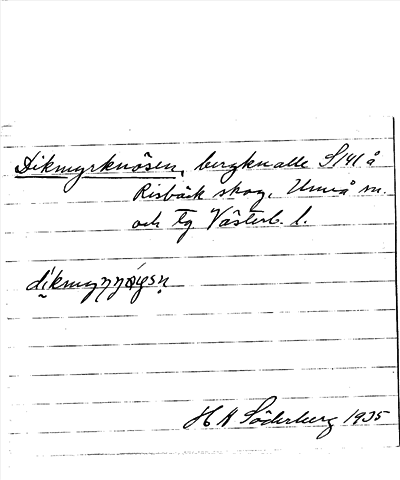 Dikmyrknösen, bergknalle S141 å
Risbäck skog, Umeå sn.
och tg Västerb. l.
H A Söderberg 1935